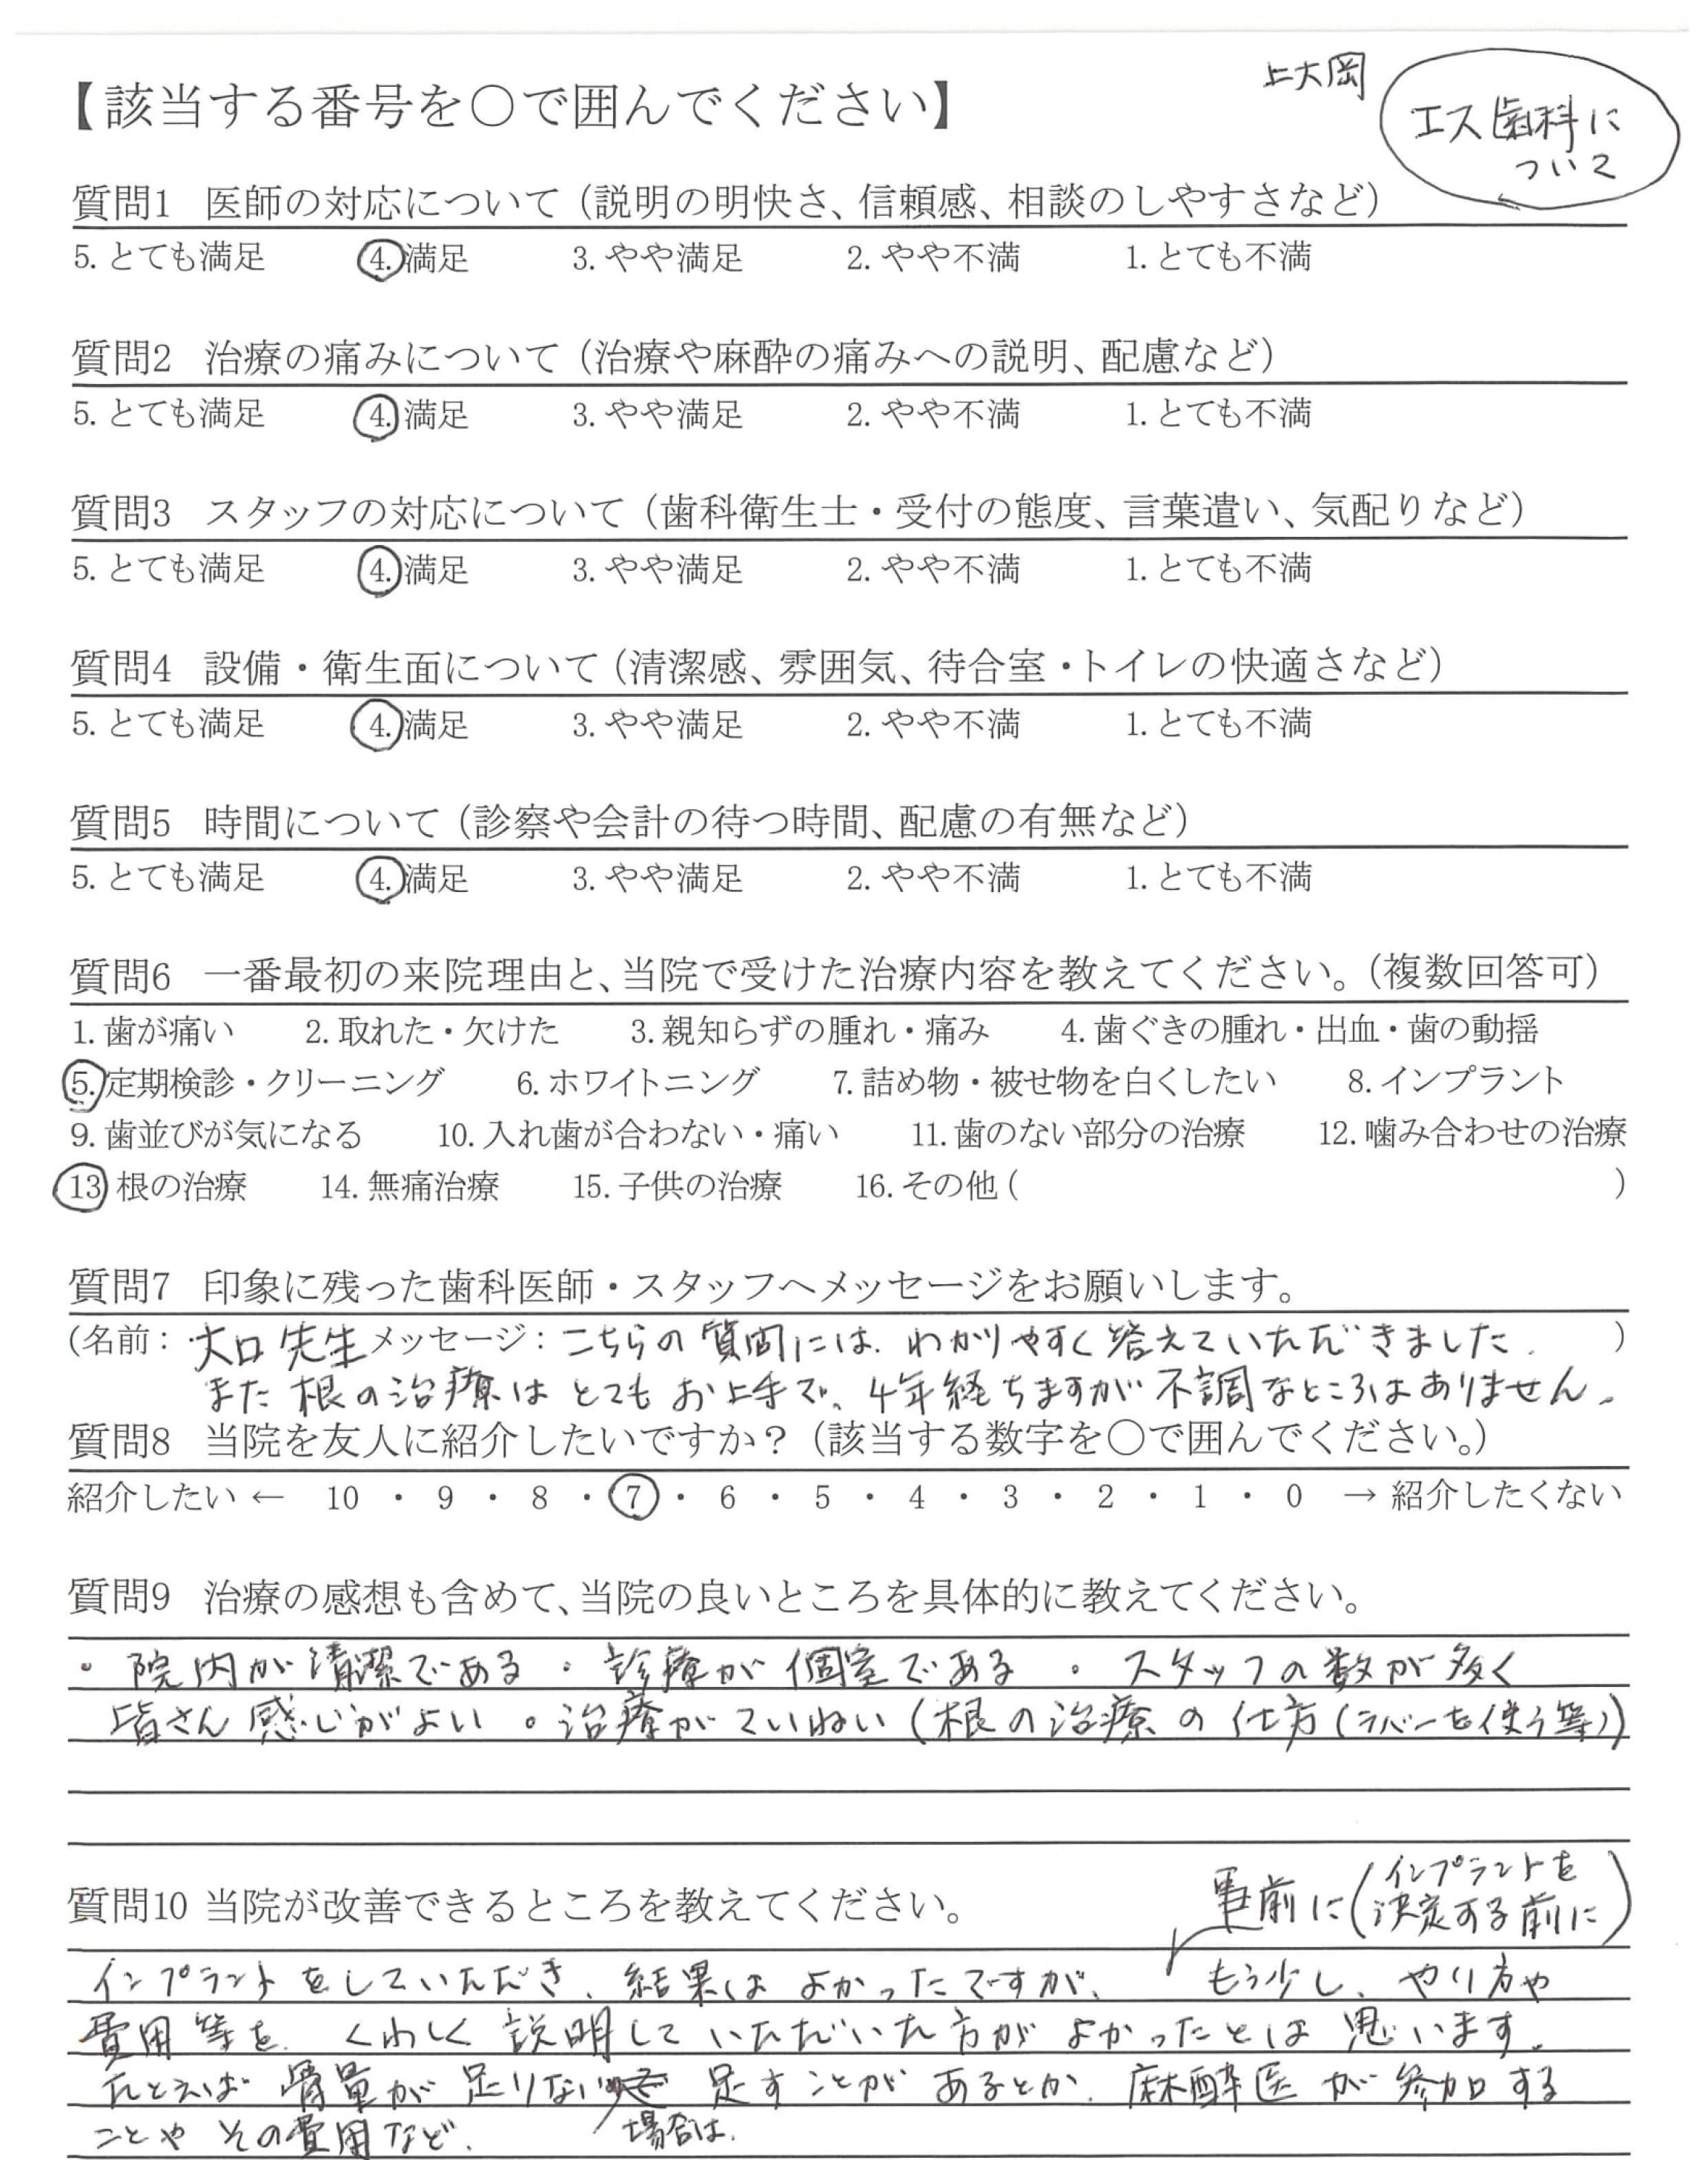 上大岡
エス歯科に
ついて
【該当する番号を○で囲んでください】
質問1 医師の対応について（説明の明快さ、信頼感、相談のしやすさなど）
5. とても満足 4. 満足 3. やや満足 2. やや不満 1. とても不満
質問2 治療の痛みについて（治療や麻酔の痛みへの説明、配慮など）
5. とても満足 4. 満足 3. やや満足 2. やや不満 1. とても不満
質問3 スタッフの対応について（歯科衛生士・受付の態度、言葉遣い、気配りなど）
5. とても満足 4. 満足 3. やや満足 2. やや不満 1. とても不満
質問4 設備・衛生面について（清潔感、雰囲気、待合室・トイレの快適さなど）
5. とても満足 4. 満足 3. やや満足 2. やや不満 1. とても不満
質問5 時間について（診察や会計の待つ時間、配慮の有無など）
5. とても満足 4. 満足 3. やや満足 2. やや不満 1. とても不満
質問6 一番最初の来院理由と、当院で受けた治療内容を教えてください。（複数回答可）
1. 歯が痛い 2. 取れた・欠けた 3. 親知らずの腫れ・痛み 4. 歯ぐきの腫れ・出血・歯の動揺
5. 定期検診・クリーニング 6. ホワイトニング 7. 詰め物・被せ物を白くしたい 8. インプラント
9. 歯並びが気になる 10. 入れ歯が合わない・痛い 11. 歯のない部分の治療 12. 噛み合わせの治療
13 根の治療 14. 無痛治療 15. 子供の治療 16. その他 ( )
質問7 印象に残った歯科医師・スタッフへメッセージをお願いします。
(名前： 大口先生 メッセージ：こちらの質問には、わかりやすく答えていただきました. )
また根の治療はとてもお上手で、4年経ちますが不調なところはありません。
質問8 当院を友人に紹介したいですか？（該当する数字を○で囲んでください。）
紹介したい ← 10 ・ 9 ・ 8 ・ 7 ・ 6 ・ 5 ・ 4 ・ 3 ・ 2 ・ 1 ・ 0 → 紹介したくない
質問9 治療の感想も含めて、当院の良いところを具体的に教えてください。
・院内が清潔である ・診療が個室である ・スタッフの数が多く
皆さん感じがよい 。治療がていねい（根の治療の仕方（ラバーを使う等））
質問10 当院が改善できるところを教えてください。
事前に（インプラントを
決定する前に）
インプラントをしていただき、結果はよかったですが、 もう少し、やり方や
費用等を、くわしく説明していただいた方がよかったとは思います.
たとえば骨量が足りない 足すことがあるとか、麻酔医が参加する
ことやその費用など. 場合は、